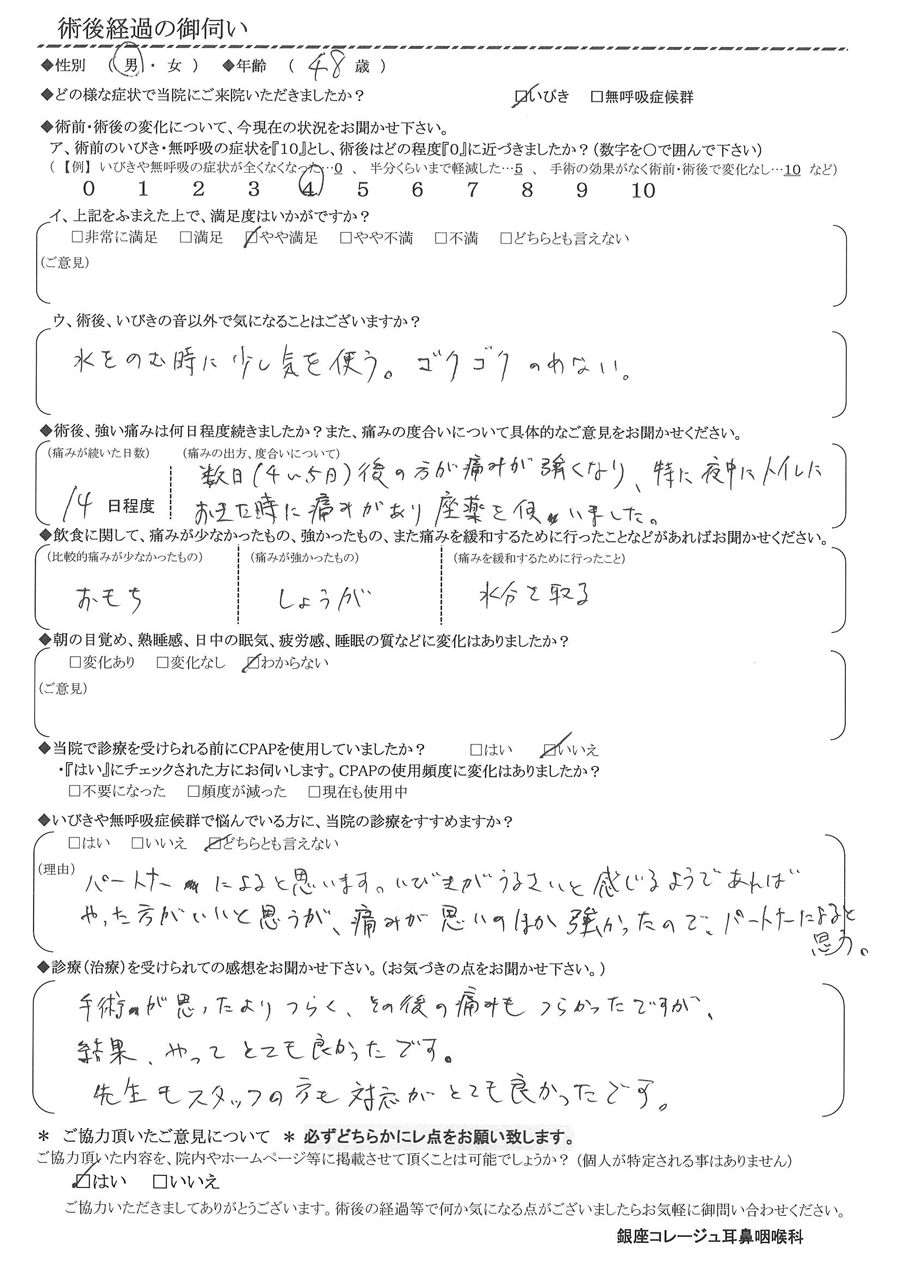 術後経過の御伺い
◆性別 （ 男 ・ 女 ） ◆年齢 （ 48 歳 ）
◆どの様な症状で当院にご来院いただきましたか？ ☑いびき □無呼吸症候群
◆術前・術後の変化について、今現在の状況をお聞かせ下さい。
ア、術前のいびき・無呼吸の症状を『10』とし、術後はどの程度『0』に近づきましたか？（数字を〇で囲んで下さい）
（【例】 いびきや無呼吸の症状が全くなくなった…0 、 半分くらいまで軽減した…5 、 手術の効果がなく術前・術後で変化なし…10 など）
0 1 2 3 4 5 6 7 8 9 10
イ、上記をふまえた上で、満足度はいかがですか？
□非常に満足 □満足 ☑やや満足 □やや不満 □不満 □どちらとも言えない
（ご意見）
ウ、術後、いびきの音以外で気になることはございますか？
水をのむ時に少し気を使う。ゴクゴクのめない。
◆術後、強い痛みは何日程度続きましたか？また、痛みの度合いについて具体的なご意見をお聞かせください。
（痛みが続いた日数） （痛みの出方、度合いについて）
数日（4〜5日）後の方が痛みが強くなり、特に夜中にトイレに
14 日程度
おきた時に痛みがあり座薬を使いました。
◆飲食に関して、痛みが少なかったもの、強かったもの、また痛みを緩和するために行ったことなどがあればお聞かせください。
（比較的痛みが少なかったもの） （痛みが強かったもの） （痛みを緩和するために行ったこと）
おもち しょうが 水分を取る
◆朝の目覚め、熟睡感、日中の眠気、疲労感、睡眠の質などに変化はありましたか？
□変化あり □変化なし ☑わからない
（ご意見）
◆当院で診療を受けられる前にCPAPを使用していましたか？ □はい ☑いいえ
・『はい』にチェックされた方にお伺いします。CPAPの使用頻度に変化はありましたか？
□不要になった □頻度が減った □現在も使用中
◆いびきや無呼吸症候群で悩んでいる方に、当院の診療をすすめますか？
□はい □いいえ ☑どちらとも言えない
（理由）
パートナーによると思います。いびきがうるさいと感じるようであれば
やった方がいいと思うが、痛みが思いのほか強かったので、パートナーによると
思う。
◆診療（治療）を受けられての感想をお聞かせ下さい。（お気づきの点をお聞かせ下さい。）
手術が思ったよりつらく、その後の痛みもつらかったですが、
結果、やってとても良かったです。
先生もスタッフの方も対応がとても良かったです。
＊ ご協力頂いたご意見について ＊ 必ずどちらかにレ点をお願い致します。
ご協力頂いた内容を、院内やホームページ等に掲載させて頂くことは可能でしょうか？（個人が特定される事はありません）
☑はい □いいえ
ご協力いただきましてありがとうございます。術後の経過等で何か気になる点がございましたらお気軽に御問い合わせください。
銀座コレージュ耳鼻咽喉科